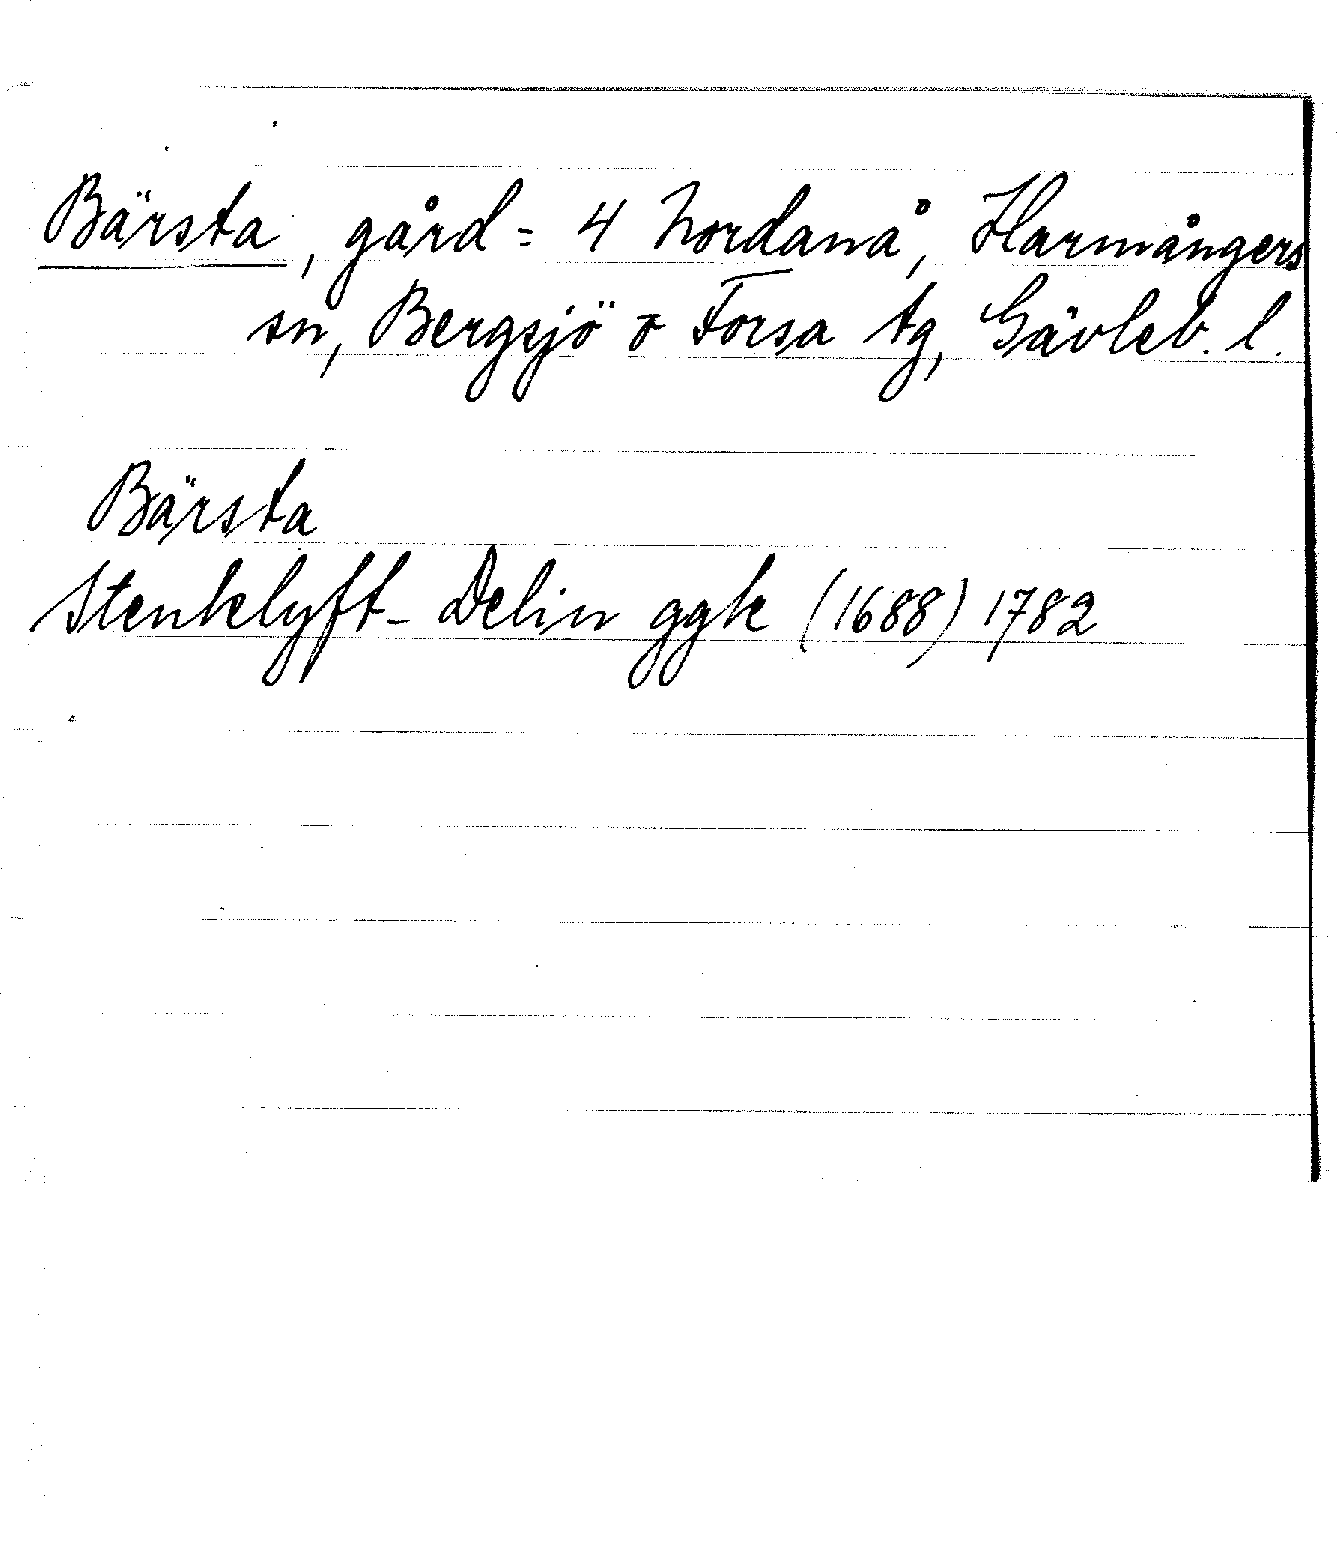 Bärsta, gård = 4 Nordanå, Harmångers
sn, Bergsjö o Forsa tg, Gävleb. l.
Bärsta
Stenklyft- Delin ggk (1688) 1782